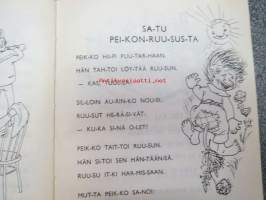 SA-TU
PEI-KON-RUU-SUS-TA
PEIK-KO HII-PI PUU-TAR-HAAN.
HÄN TAH-TOI LÖY-TÄÄ RUU-SUN.
— KAS, TUOS-SA!
SIL-LOIN AU-RIN-KO NOUSI.
RUU-SUT HE-RÄ-SI-VÄT.
— KU-KA SI-NÄ O-LET?
PEIK-KO TAIT-TOI RUU-SUN.
HÄN SI-TOI SEN HÄN-TÄÄN-SÄ.
RUU-SU IT-KI HAA-MIS-SAAN.
MUT-TA PEIK-KO SA-NOI: